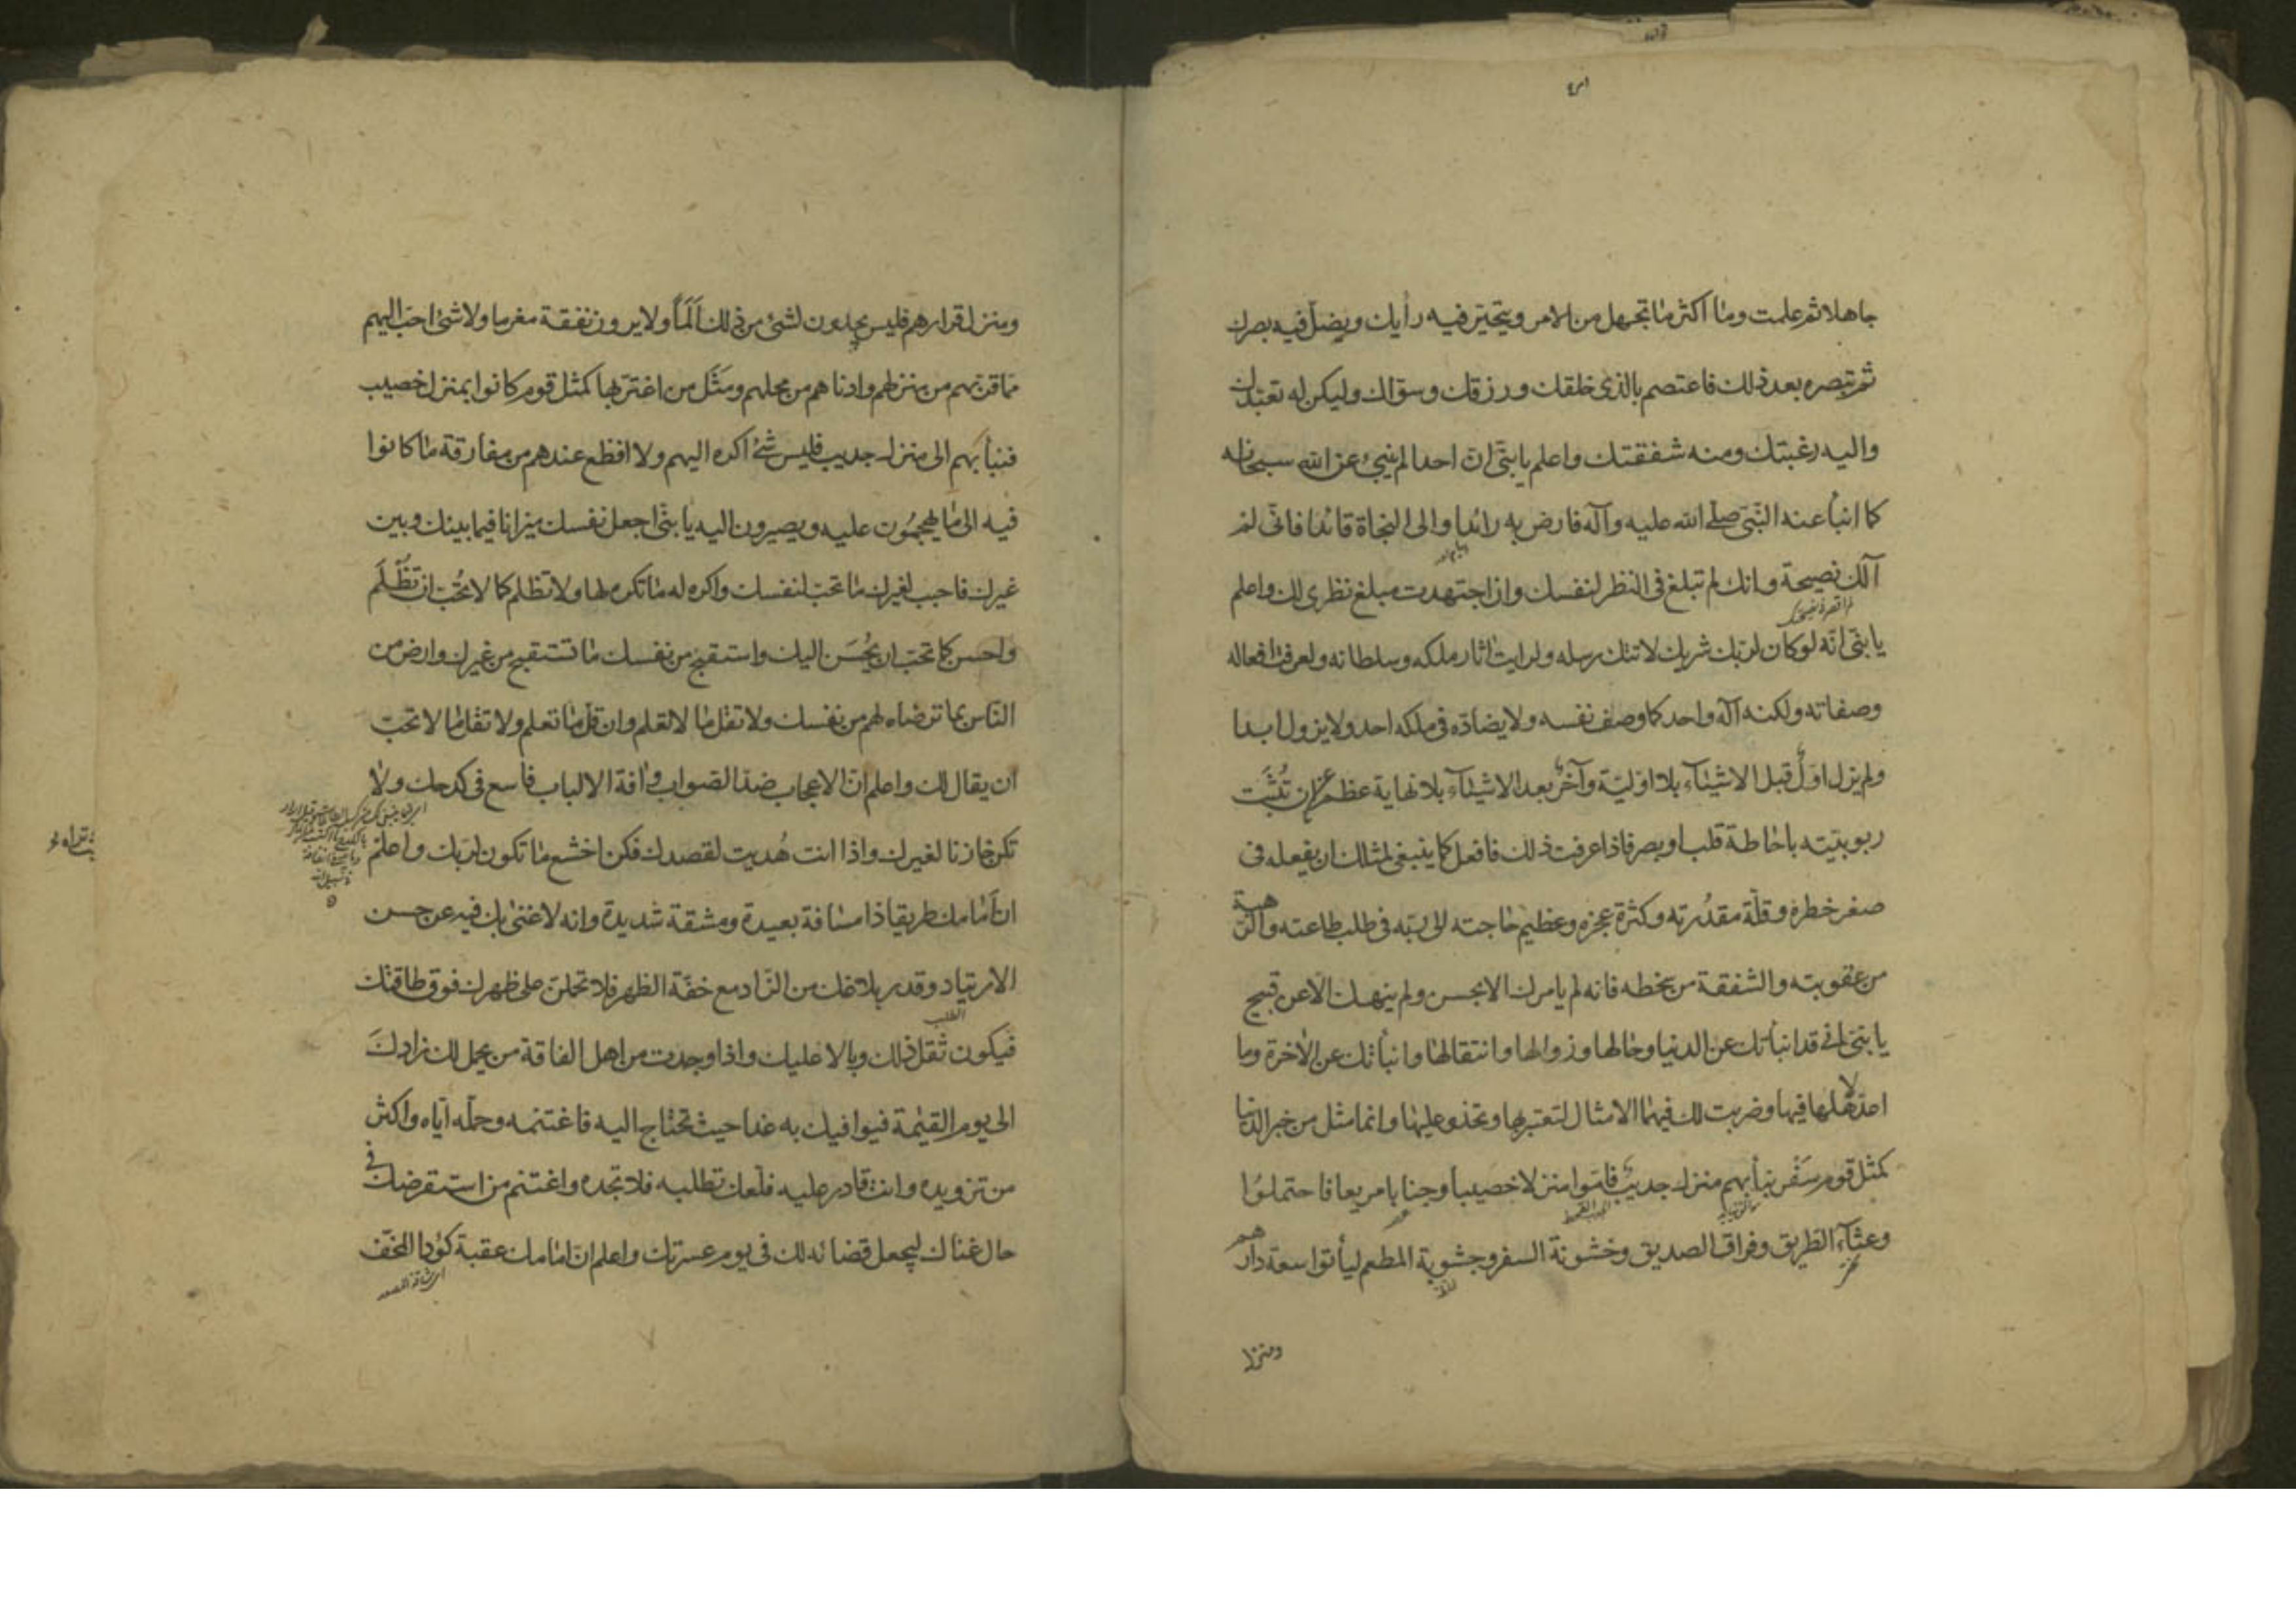 جاهلا ثم علمت وما اكثر ما تجهل من الامر ويتحير فيه رأيك ويضل فيه بصرك
ثم تبصره بعد ذلك فاعتصم بالذى خلقك ورزقك وسوّاك وليكن له تعبدك
واليه رغبتك ومنه شفقتك واعلم يا بنىّ انّ احدا لم ينبئ عن الله سبحانه
كما انبأ عنه النبىّ صلى الله عليه وآله فارض به رائدا والى النجاة قائدا فانّى لم
آلك نصيحة وانك لم تبلغ فى النظر لنفسك وان اجتهدت مبلغ نظرى لك واعلم
يا بنىّ انّه لو كان لربّك شريك لاتتك رسله ولرايت اثار ملكه وسلطانه ولعرفت افعاله
وصفاته ولكنه اله واحد كما وصف نفسه ولا يضادّه فى ملكه احد ولا يزول ابدا
ولم يزل اوّل قبل الاشياء بلا اوّليّة وآخر بعد الاشياء بلا نهاية عظم عن ان تُثبَت
ربوبيّته باحاطة قلب او بصر فاذا عرفت ذلك فافعل كما ينبغى لمثلك ان يفعله فى
صغر خطره وقلّة مقدُرته وكثرة عجزه وعظيم حاجته الى ربّه فى طلب طاعته والرّهبة
من عقوبته والشفقة من سخطه فانه لم يامرك الا بحسن ولم ينهك الّا عن قبيح
يا بنىّ انى قد انبأتك عن الدنيا وحالها وزوالها وانتقالها وانبأتك عن الآخرة وما
اعدّ لاهلها فيها وضربت لك فيهما الامثال لتعتبر بها وتحذو عليها وانما مثل من خبر الدنيا
كمثل قوم سَفْر نبأ بهم منزل جديب فامّوا منزلا خصيبا وجنابا مريعا فاحتملوا
وعثاء الطريق وفراق الصديق وخشونة السفر وجشوبة المطعم ليأتوا سعة دارهم
ومنزل
ومنزل قرارهم فليس يجدون لشئ من ذلك اَلَماً ولا يرون نفقة مغرما ولا شئ احبّ اليهم
ممّا قرّبهم من منزلهم وادناهم من محلهم ومَثَل من اغترّ بها كمثل قوم كانوا بمنزل خصيب
فنبأ بهم الى منزل جديب فليس شئ اكره اليهم ولا افظع عندهم من مفارقة ما كانوا
فيه الى ما يهجمُون عليه ويصيرون اليه يا بنىّ اجعل نفسك ميزانا فيما بينك وبين
غيرك فاحبب لغيرك ما تحبّ لنفسك واكره له ما تكره لها ولا تظلم كما لا تُحبّ ان تُظْلَم
واحسن كما تحبّ ان يُحْسَن اليك واستقبح من نفسك ما تستقبح من غيرك وارض من
النّاس بما ترضاه لهم من نفسك ولا تقل ما لا تعلم وان قلّ ما تعلم ولا تقل ما لا تحبّ
ان يقال لك واعلم انّ الاعجاب ضدّ الصّواب وافة الالباب فاسع فى كدحك ولا
تكن خازنا لغيرك واذا انت هُديت لقصدك فكن اخشع ما تكون لربّك واعلم
انّ امامك طريقا ذا مسافة بعيدة ومشقة شديدة وانه لا غنى بك فيه عن حسن
الارتياد وقدر بلاغك من الزّاد مع خفّة الظهر فلا تحملنّ على ظهرك فوق طاقتك
الطلب
فيكون ثقل ذلك وبالا عليك واذا وجدت من اهل الفاقة من يحمل لك زادكَ
الى يوم القيمة فيوافيك به غدا حيث تحتاج اليه فاغتنمه وحمّله ايّاه واكثر
من تزويده وانت قادر عليه فلعلّك تطلبه فلا تجده واغتنم من استقرضك فى
حال غناك ليجعل قضائه لك فى يوم عسرتك واعلم انّ امامك عقبة كؤدا المخفّ